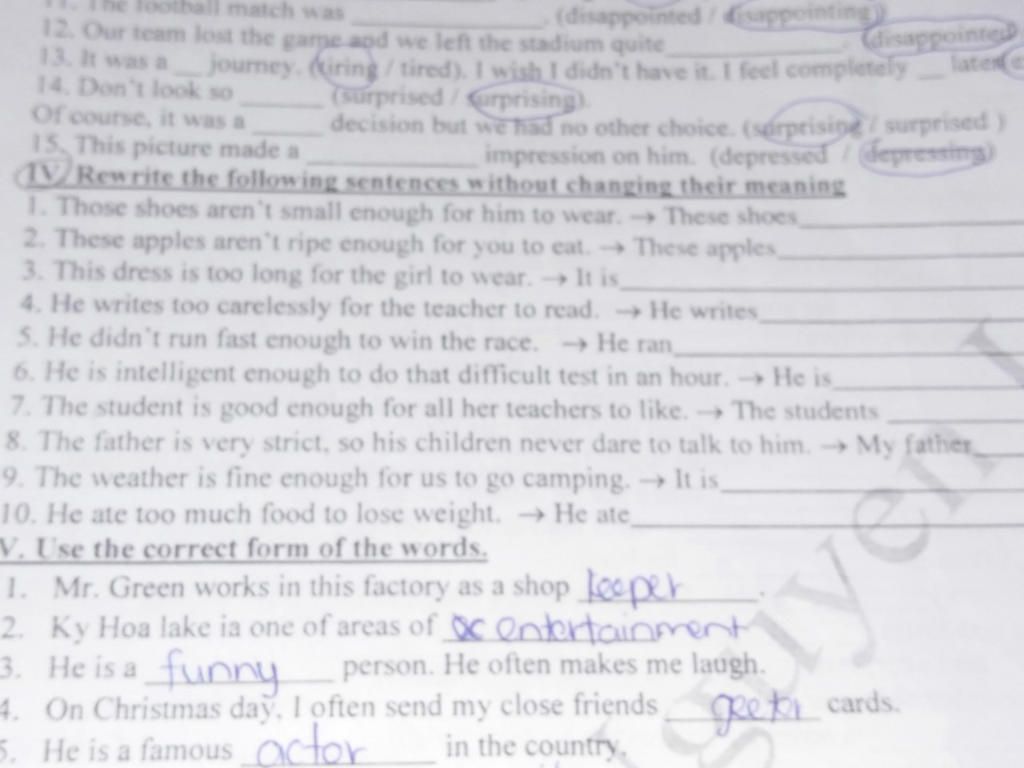 11. The football match was ____________. (disappointed / disappointing)
12. Our team lost the game and we left the stadium quite ____________. (disappointed
13. It was a __ journey. (tiring / tired). I wish I didn't have it. I feel completely __
14. Don't look so ______ (surprised / surprising).
Of course, it was a _____ decision but we had no other choice. (surprising / surprised )
15. This picture made a ____________ impression on him. (depressed / depressing)
IV/ Rewrite the following sentences without changing their meaning
1. Those shoes aren't small enough for him to wear. → These shoes____________
2. These apples aren't ripe enough for you to eat. → These apples____________
3. This dress is too long for the girl to wear. → It is____________
4. He writes too carelessly for the teacher to read. → He writes____________
5. He didn't run fast enough to win the race. → He ran____________
6. He is intelligent enough to do that difficult test in an hour. → He is____________
7. The student is good enough for all her teachers to like. → The students ____________
8. The father is very strict, so his children never dare to talk to him. → My father____
9. The weather is fine enough for us to go camping. → It is____________
10. He ate too much food to lose weight. → He ate____________
V. Use the correct form of the words.
1. Mr. Green works in this factory as a shop keeper.
2. Ky Hoa lake ia one of areas of entertainment
3. He is a funny person. He often makes me laugh.
4. On Christmas day, I often send my close friends cards.
5. He is a famous actor in the country.